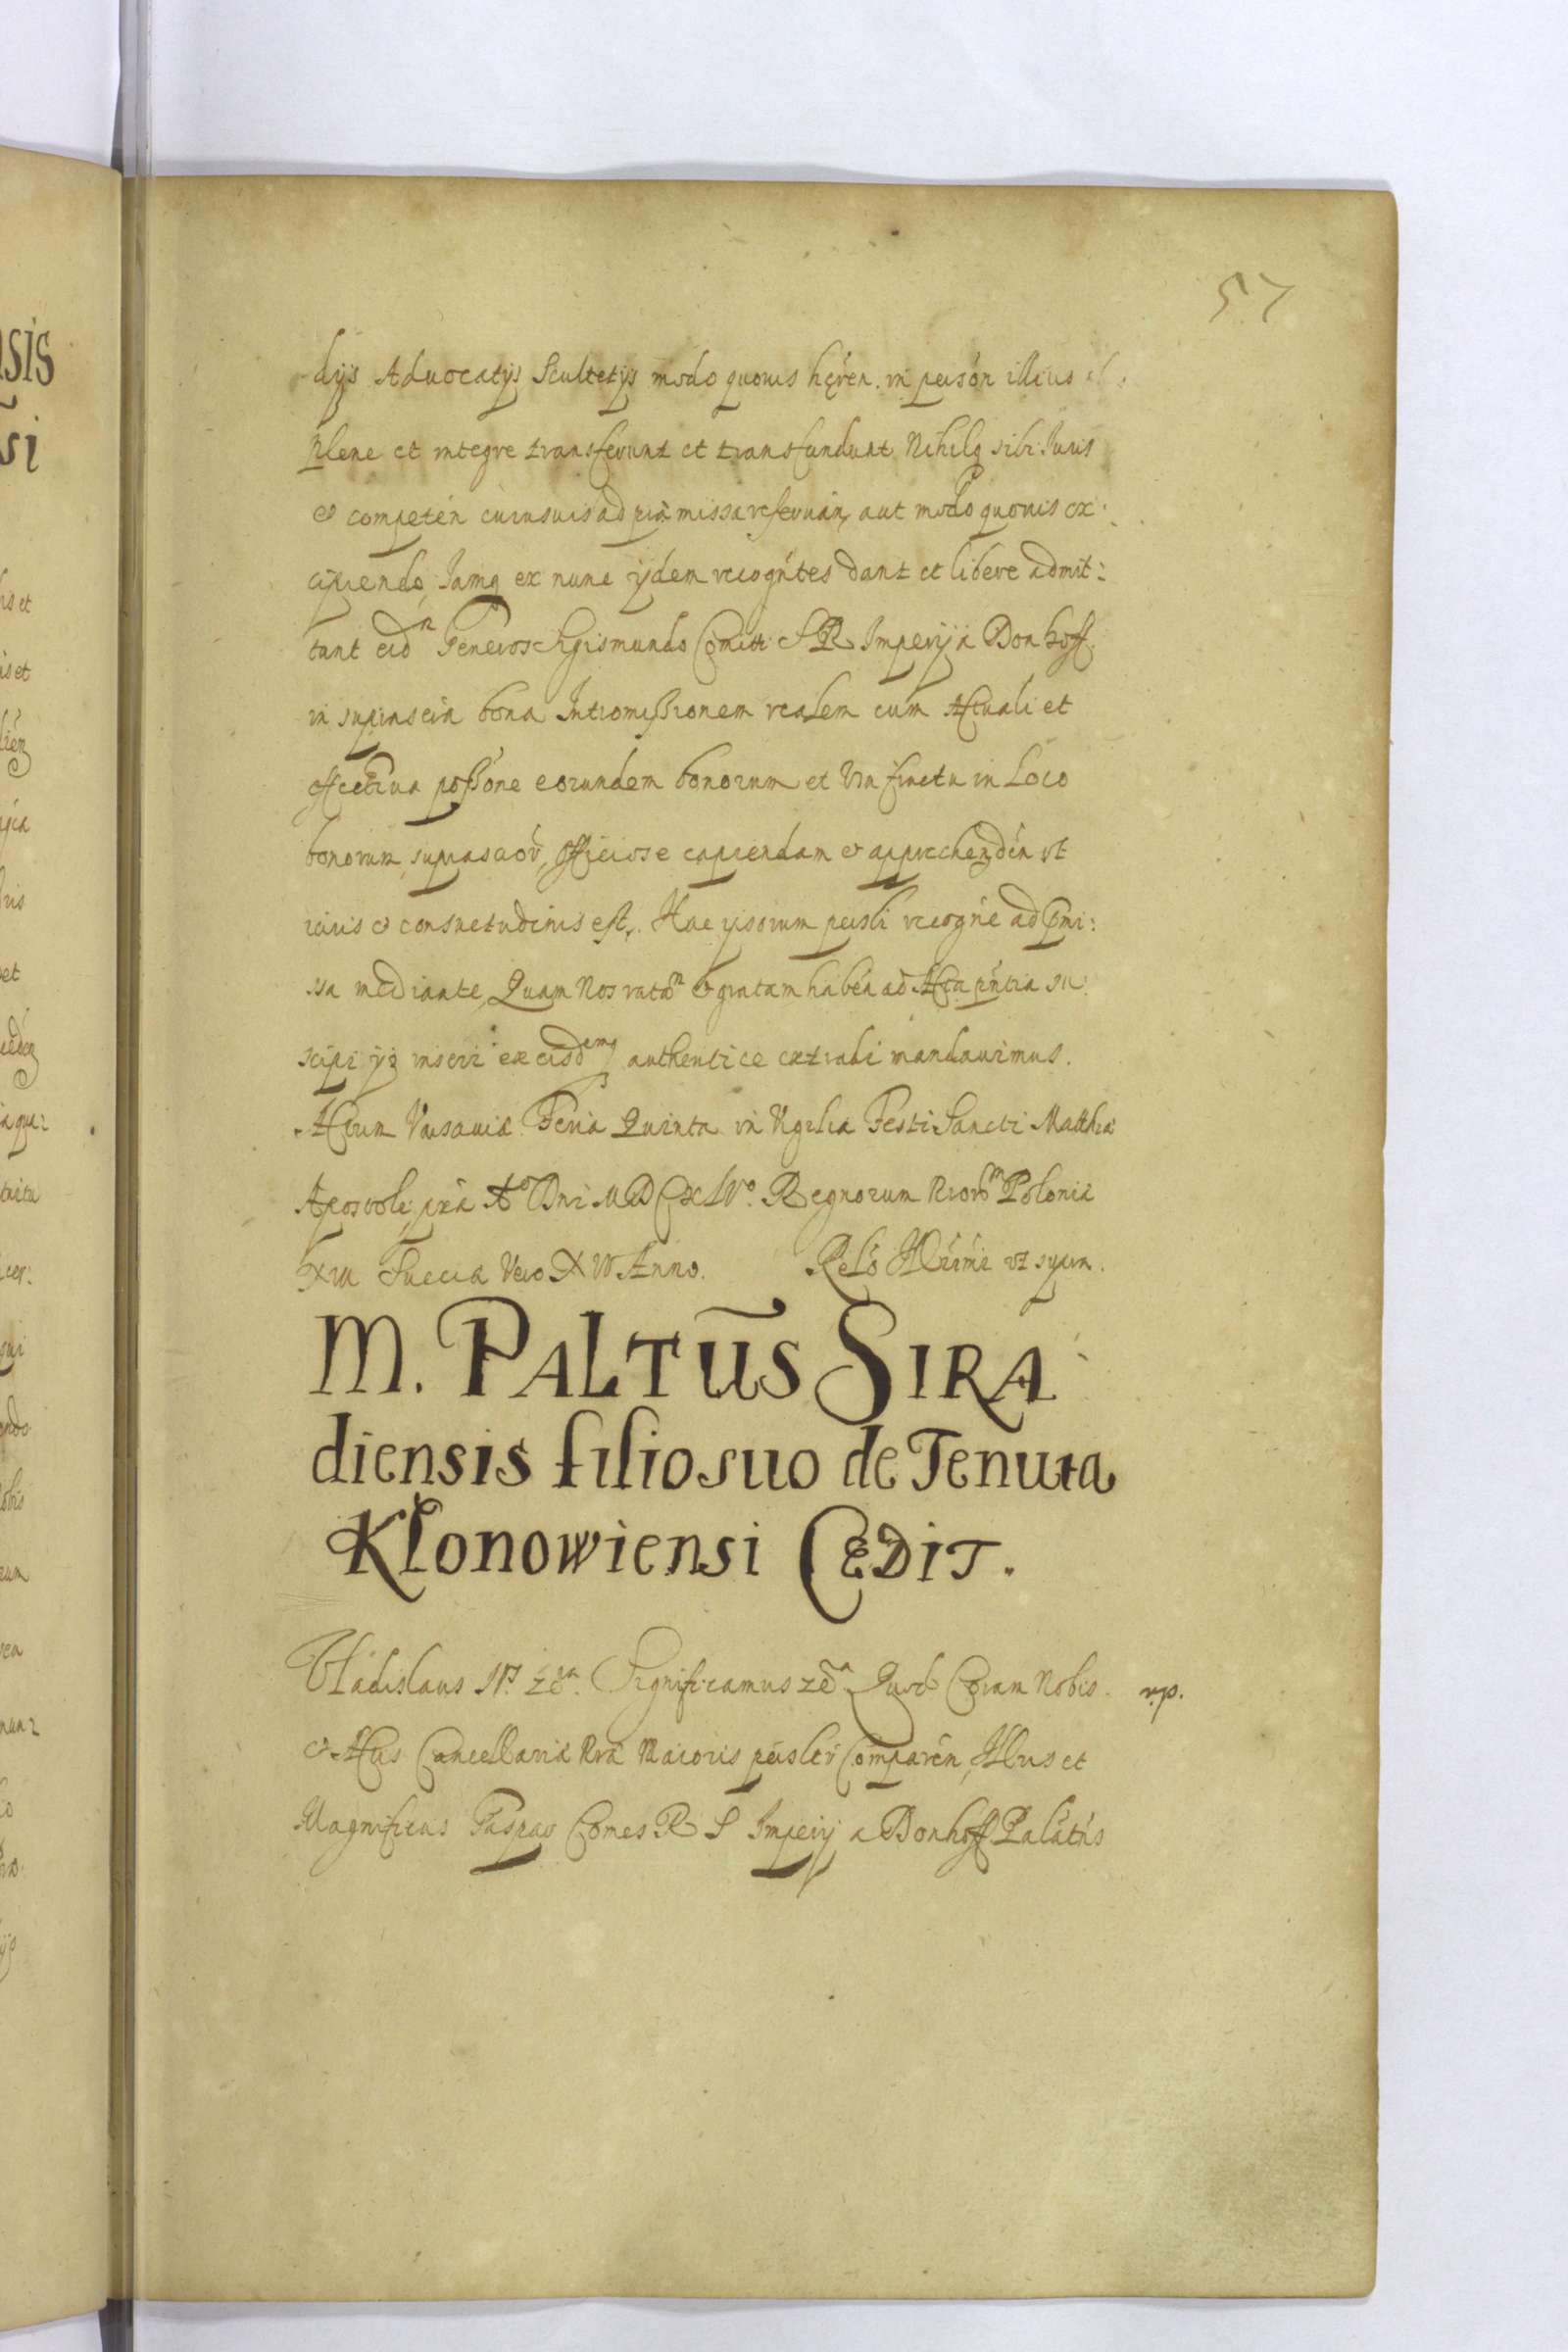 57
dijs Advocatijs Scultetijs modo quovis hęren. in persón illius
plene et integre transferunt et transfundunt Nihilq sibi Juris
& competén cuiusuis ad præmissa reserván, aut modo quovis ex:
cipiendo, Jamq ex nunc ijdem recogńtes dant et libere admit:
tunt eidn Generoso Sigismundo Comitti S R Imperij a Donhoff.
in suprascia bona Intromissionem realem cum Actuali et
effectiva possōne eorundem bonorum et Usu fructu in Loco
bonorum, suprascior, officiose capiendam & apprechendén ut
iuris & consuetudinis est. Hac ipsorum persli recogńe ad pmi:
ssa mediante, Quam Nos ratam & gratam habén ad Acta pńtia su:
scipi ijs inseri ex eisdemq authentice extradi mandavimus.
Actum Varsaviæ Feria Quinta in Vigilia Festi Sancti Matthiæ
Apostoli, Ao Dni MDCXLVo. Regnorum Nrorm Poloniæ
XIII Sueciæ Vero XIV Anno. Relō ut supra.
M. PALTUS SIRA
diensis filio suo de Tenuta
Kłonowiensi CEDIT.
Vladislaus IVs zca. Significamus zca Quod Coram Nobis r.p.
& Actis Cancellariæ Nræ Maioris persler Comparén, Illus et
Magnificus Gaspar Comes R S Imperij a Donhoff Palatńs